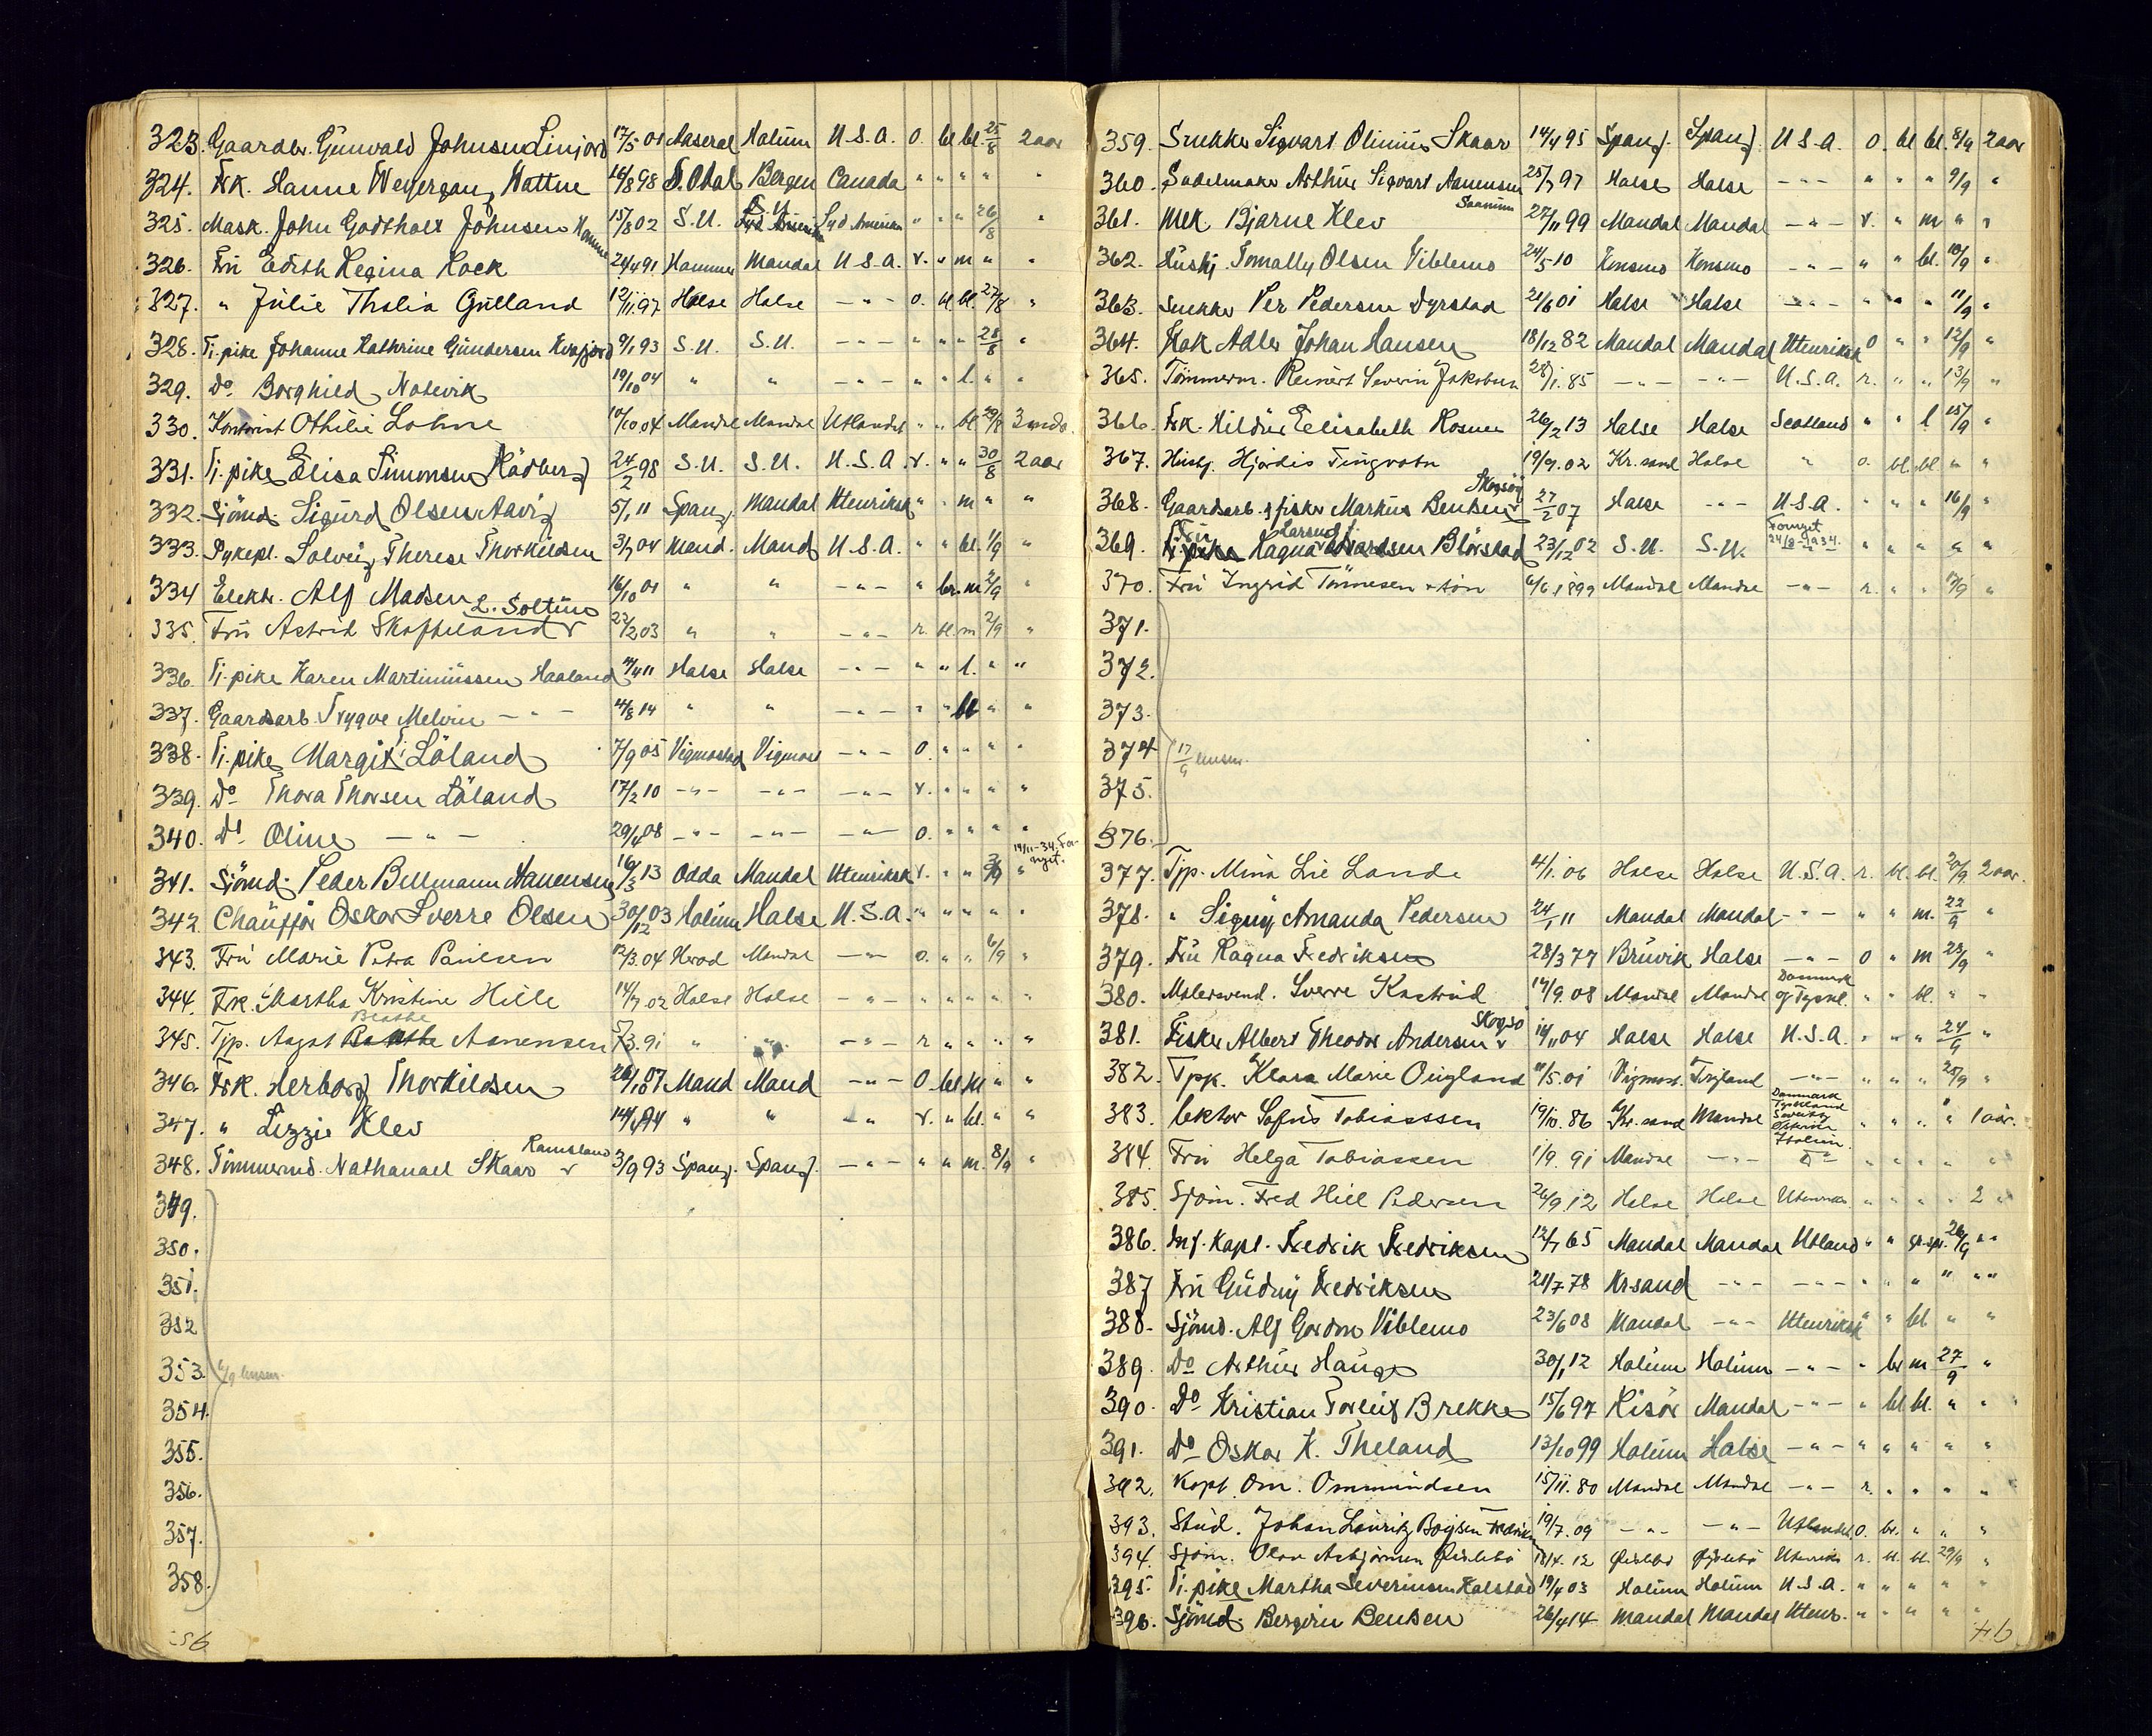 323. Gaardbr. Gunvald Johnsen Linjord 17/5 01 Aaseral Halum U.S.A. o. bl bl. 25/8 2 aar
324. Frk. Hanne Weyergang Wattne 16/8 98 S. Odal Bergen Canada " " " " "
325. Mask. John Godthalt Johnsen 15/8 02 S.U. S.U. Syd Amerika " " " 26/8 "
326. Fru Edith Regina Kock 24/4 91 Hammer Mandal U.S.A. r. " m " "
327. " Julie Thalia Gulland 12/11.97 Halse Halse — " — o. bl bl. 27/8 "
328. Tj. pike Johanne Kathrine Gundersen 9/1 93 S.U. S.U. — " — " " " 28/8 "
329. Do Borghild Nodevik 19/10 04 " " — " — " " l. " "
330. Kontorist Othilie Lohne 10/10 04 Mandal Mandal Utlandet " " bl 29/8 3 mdr.
331. Tj. pike Elisa Simonsen Rädberg 24/2 98 S.U. S.U. U.S.A. r. " " 30/8 2 aar
332. Sjömd. Sigurd Olsen Aavig 5/1 11 Spang. Mandal Utenriksk " " m " "
333. Sykepl. Solveig Therese Thorkildsen 3/7 04 Mand. Mand U.S.A. " " bl. 1/9 "
334 Elektr. Alf Madsen 16/10 01 " " — " — " br. m 2/9 "
335. Fru Astrid Skofteland L. Soltun 22/2 03 " " — " — r. bl. m 2/9 "
336. Tj. pike Karen Martiniussen Haaland 4/4 11 Halse Halse — " — " " l. " "
337. Gaardsarb. Trygve Melvin — " — 4/8 14 " " — " — " " bl " "
338. Tj. pike Margit Löland 7/9 05 Vigmostad Vigmost — " — o. " " " "
339. Do Thora Thorsen Löland 17/2 10 — " — — " — — " — r. " " " "
340. Do Oline — " — 29/4 08 — " — — " — — " — o. " " " "
341. Sjömd. Peder Bellmann Aanensen 16/3 13 Odda Mandal Utenriksk r. " " 3/9 " 19/11-34. Fornyet.
342. Chauffør Oskar Sverre Olsen 30/12 03 Halum Halse U.S.A. " " " " "
343. Fru Marie Petra Paulsen 12/3.04 Herad Mandal — " — o. " " 6/9 "
344. Frk. Martha Kristine Hille 14/7 02 Halse Halse — " — " " " " "
345. Tjp. Aagot Beathe Aanensen 5/3.91 " " — " — r " " " "
346. Frk. Herborg Thorkildsen 26/1 07 Mand Mand — " — o bl bl " "
347. " Lizzie Klev 14/1 94 " " — " r. " bl. " "
348. Tömmermd. Nathanael Skaar Ramsland 3/9 93 Spang. Spang. — " — " " m. 8/9 "
349.
350.
351.
352
353. 6/9 Unsen.
354.
355.
356.
357.
358.
359. Snekker Sigvart Olinius Skaar 14/4 95 Spang. Spang. U.S.A. o. bl bl. 8/9 2 aar
360. Sadelmaker Arthur Sigvart Aanensen Saanum 25/7 97 Halse Halse — " — " " " 9/9 "
361. Mek. Bjarne Klev 27/11 99 Mandal Mandal — " — r. " m " "
362. Huskj. Tomally Olsen Viblemo 24/5 10 Konsmo Konsmo — " — " " bl. 10/9 "
363. Snekker Per Pedersen Dyrstad 21/6 01 Halse Halse — " — " " " 11/9 "
364. Adler Johan Hansen 18/12 82 Mandal Mandal Utenriksk o " " 12/9 "
365. Tömmerm. Reinert Severin Jakobsen 28/1. 85 — " — — " — U.S.A. r. " " 13/9 "
366. Frk. Hildur Elisabeth Rosnes 26/2 13 Halse Halse Scotland " " l 15/9 "
367. Husbj. Hjördis Tingvatn 19/9. 02 Kr.sand Halse " o. bl. bl " "
368. Gaardsarb. & fisker Markus Bentsen Skogsöy 27/2 07 Halse — " — U.S.A. " " " 16/9 "
369. Fru Ragna Larsen Blörstad 23/12 02 S.U. S.U. Fornyet 24/8-1934. " " " " "
370. Fru Ingrid Tönnesen + sön 6/6 1899 Mandal Mandal — " — r. " " 17/9 "
371.
372.
373.
374 17/9 Unsen.
375.
376.
377. Tjp. Mina Lie Lande 4/1. 06 Halse Halse U.S.A. r. bl. bl. 20/9 2 aar.
378. " Signy Amanda Pedersen 24/1 11 Mandal Mandal — " — " " m. 22/9 "
379. Fru Ragna Fredriksen 28/3 77 Bruvik Halse — " — o " m 23/9 "
380. Malersvend. Sverre Kastrud 14/9. 08 Mandal Mandal Danmark og Tyskl. " " bl. " "
381. Fisker Albert Theodor Andersen Skogsö 14/11 04 Halse Halse U.S.A. " " " 24/9 "
382. Tpk. Klara Marie Ougland 11/5. 01 Vigmost. Tryland — " — " " " 25/9 "
383. Lektor Sofus Tobiassen 19/10. 86 Kr.sand Mandal Danmark Tyskland Sveits Østerrike Italien. " " " " 1 aar.
384. Fru Helga Tobiassen 1/9. 91 Mandal — " — Do " " " " "
385. Sjöm. Fred Hill Pedersen 26/9.12 Halse Halse Utenriks " " " " 2 "
386. Inf. Kapt. Fredrik Fredriksen 12/7 65 Mandal Mandal Utland " " gr.spr. 26/9 "
387 Fru Gudny Fredriksen 21/7 78 Krsand — " — — " — " " " " "
388. Sjömd. Alf Gordon Viblemo 23/6 08 Mandal — " — Utenriksk " " bl " "
389. Do Arthur Hauge 30/1 12 Halum Halum — " — " br m 27/9 "
390. Do Kristian Torleif Brekke 15/6 97 Risör Mandal — " — " bl bl. " "
391. Do Oskar K. Theland 13/10 99 Halum Halse — " — " " " " "
392. Kapt. Om. Ommundsen 15/11. 80 Mandal Mandal — " — r. " " " "
393. Stud. Johan Lauritz Boysen Fredriksen 19/7. 09 — " — — " — Utlandet o. br. " " "
394. Sjöm. Olav Asbjörnsen Øislebö 18/X. 12 Øislebö Øislebö Utenriks r. bl. bl. 29/9 "
395. Tj. pike Martha Severinsen Halstad 19/4 03 Halum Halum U.S.A. " " " " "
396. Sjömd. Bergvin Bentsen 26/4 14 Mandal Mandal Utenr. " " " " "